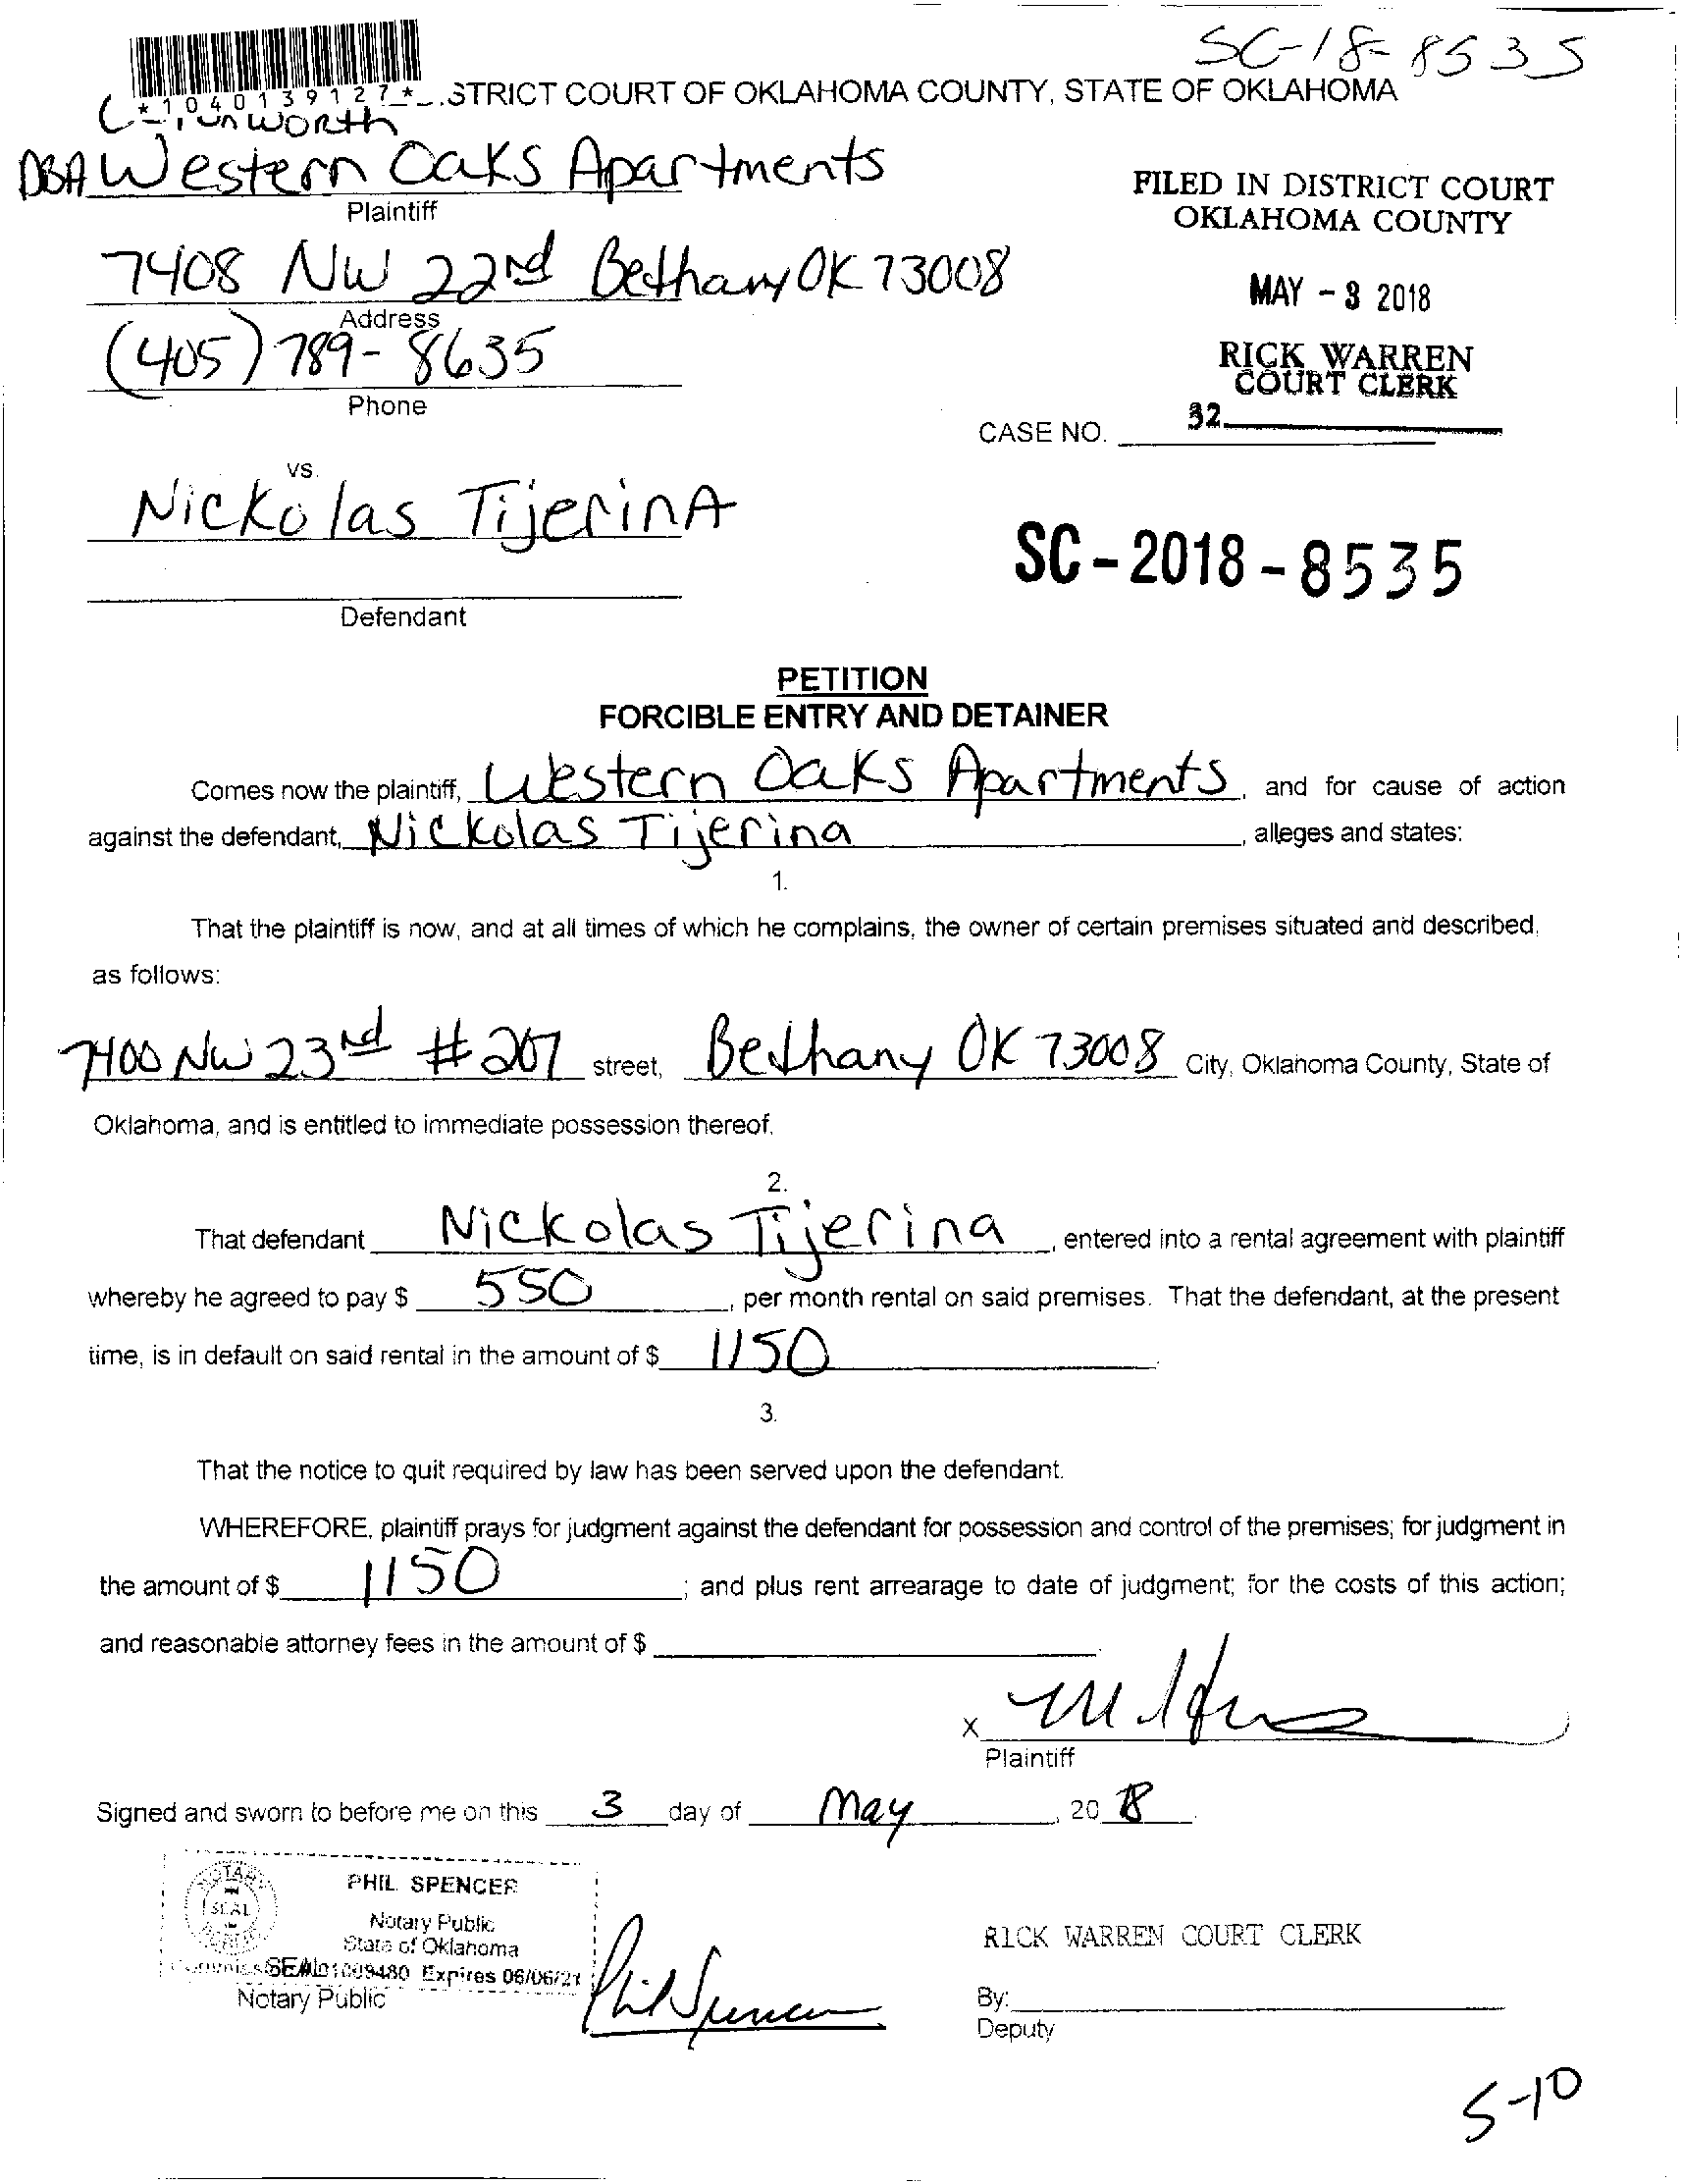 SC-18-8535
*1040139127*
STRICT COURT OF OKLAHOMA COUNTY, STATE OF OKLAHOMA
DBA Western Oaks Apartments
Plaintiff
FILED IN DISTRICT COURT
OKLAHOMA COUNTY
7408 NW 22nd Bethany OK 73008
Address
MAY - 3 2018
(405) 789-8635
Phone
RICK WARREN
COURT CLERK
32
CASE NO.
vs.
Nickolas TijerinA
SC - 2018 - 8535
Defendant
PETITION
FORCIBLE ENTRY AND DETAINER
Comes now the plaintiff, Western Oaks Apartments, and for cause of action
against the defendant, Nickolas Tijerina, alleges and states:
1.
That the plaintiff is now, and at all times of which he complains, the owner of certain premises situated and described,
as follows:
7400 NW 23rd # 207 street, Bethany OK 73008 City, Oklahoma County, State of
Oklahoma, and is entitled to immediate possession thereof.
2.
That defendant Nickolas Tijerina, entered into a rental agreement with plaintiff
whereby he agreed to pay $ 550, per month rental on said premises. That the defendant, at the present
time, is in default on said rental in the amount of $ 1150.
3.
That the notice to quit required by law has been served upon the defendant.
WHEREFORE, plaintiff prays for judgment against the defendant for possession and control of the premises; for judgment in
the amount of $ 1150; and plus rent arrearage to date of judgment; for the costs of this action;
and reasonable attorney fees in the amount of $
X
Plaintiff
Signed and sworn to before me on this 3 day of May, 2018.
PHIL SPENCER
SEAL
Notary Public
State of Oklahoma
SEAL 01009480 Expires 06/06/21
Notary Public
Phil Spencer
RICK WARREN COURT CLERK
By:
Deputy
5-10